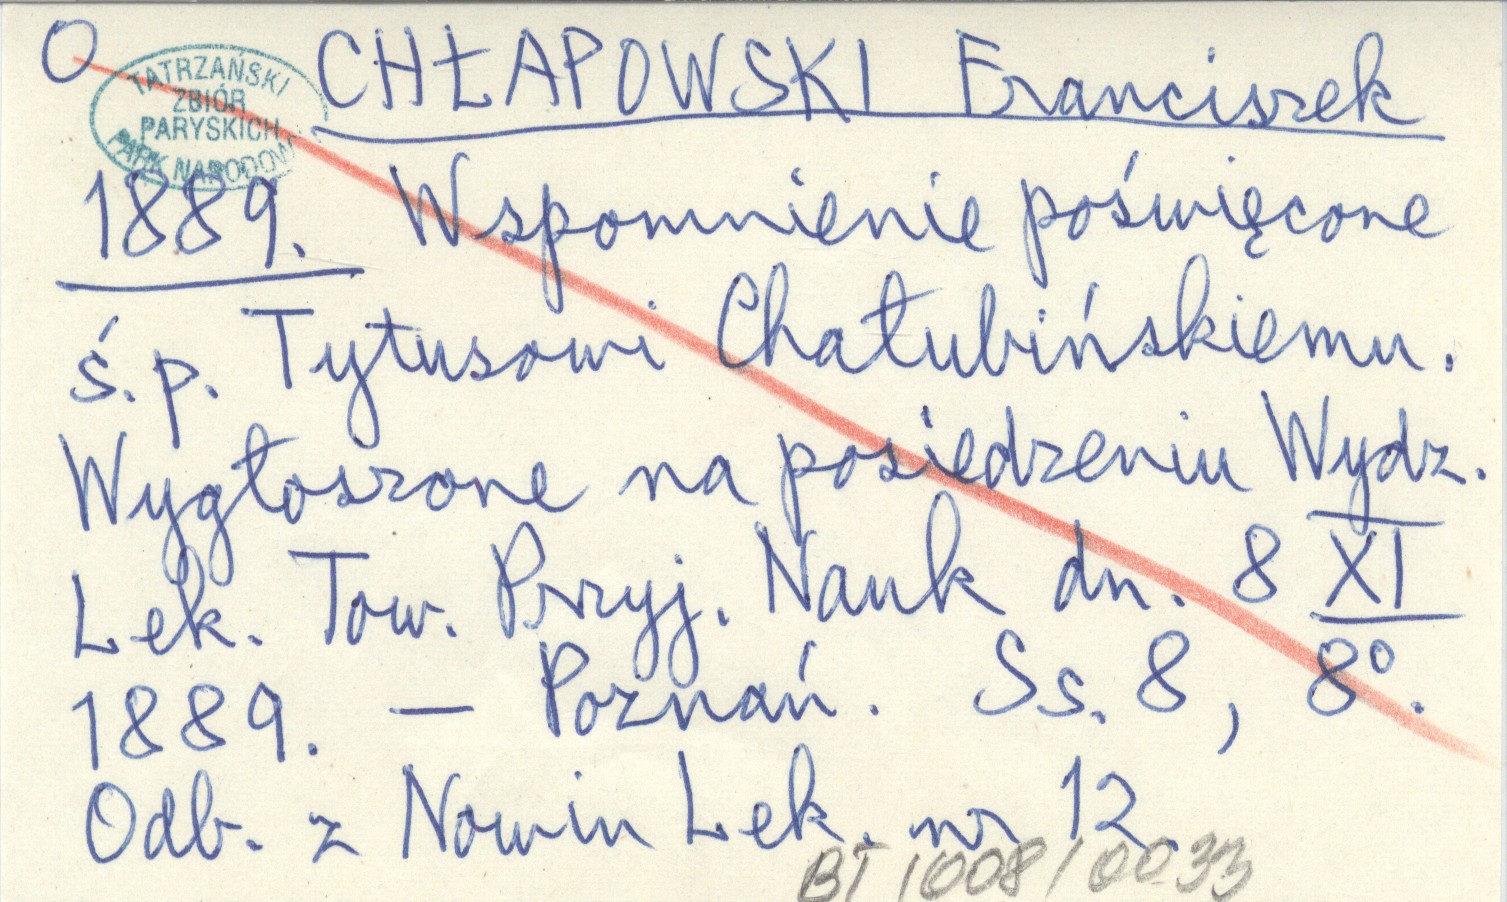 O CHŁAPOWSKI Franciszek
TATRZAŃSKI
ZBIÓR
PARYSKICH
PARK NARODOW
1889. Wspomnienie poświęcone
ś.p. Tytusowi Chałubińskiemu.
Wygłoszone na posiedzeniu Wydz.
Lek. Tow. Przyj. Nauk dn. 8 XI
1889. — Poznań. Ss. 8, 8°.
Odb. z Nowin Lek. nr 12.
BT 1008/0033